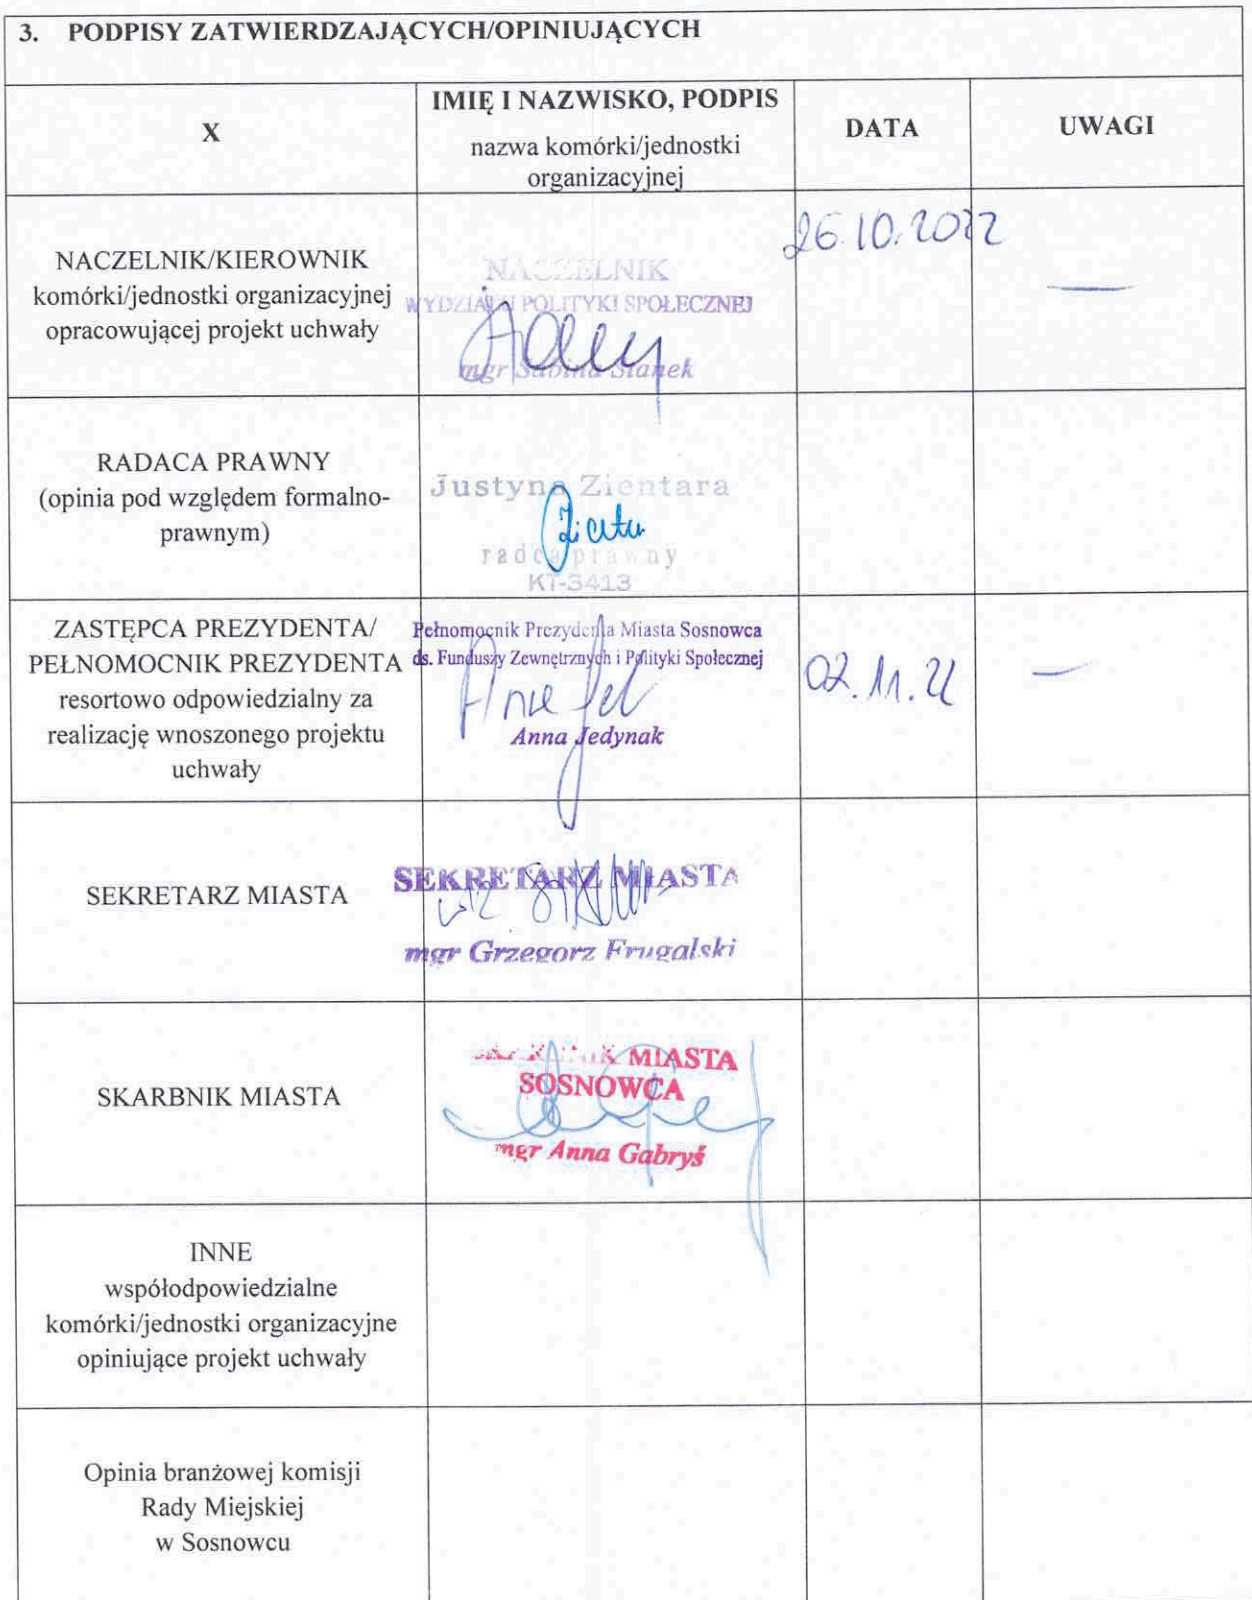 3. PODPISY ZATWIERDZAJĄCYCH/OPINIUJĄCYCH
X
IMIĘ I NAZWISKO, PODPIS
nazwa komórki/jednostki
organizacyjnej
DATA
UWAGI
NACZELNIK/KIEROWNIK
komórki/jednostki organizacyjnej
opracowującej projekt uchwały
NACZELNIK
WYDZIAŁU POLITYKI SPOŁECZNEJ
mgr Sabina Stanek
26.10.2022
—
RADACA PRAWNY
(opinia pod względem formalno-
prawnym)
Justyna Zientara
radca prawny
KT-3413
ZASTĘPCA PREZYDENTA/
PEŁNOMOCNIK PREZYDENTA
resortowo odpowiedzialny za
realizację wnoszonego projektu
uchwały
Pełnomocnik Prezydenta Miasta Sosnowca
ds. Funduszy Zewnętrznych i Polityki Społecznej
Anna Jedynak
02.11.22
—
SEKRETARZ MIASTA
SEKRETARZ MIASTA
mgr Grzegorz Frugalski
SKARBNIK MIASTA
SKARBNIK MIASTA
SOSNOWCA
mgr Anna Gabryś
INNE
współodpowiedzialne
komórki/jednostki organizacyjne
opiniujące projekt uchwały
Opinia branżowej komisji
Rady Miejskiej
w Sosnowcu